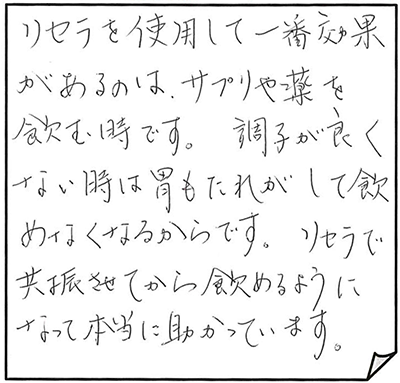 リセラを使用して一番効果
があるのは、サプリや薬を
飲む時です。 調子が良く
ない時は胃もたれがして飲
めなくなるからです。リセラで
共振させてから飲めるように
なって本当に助かっています。